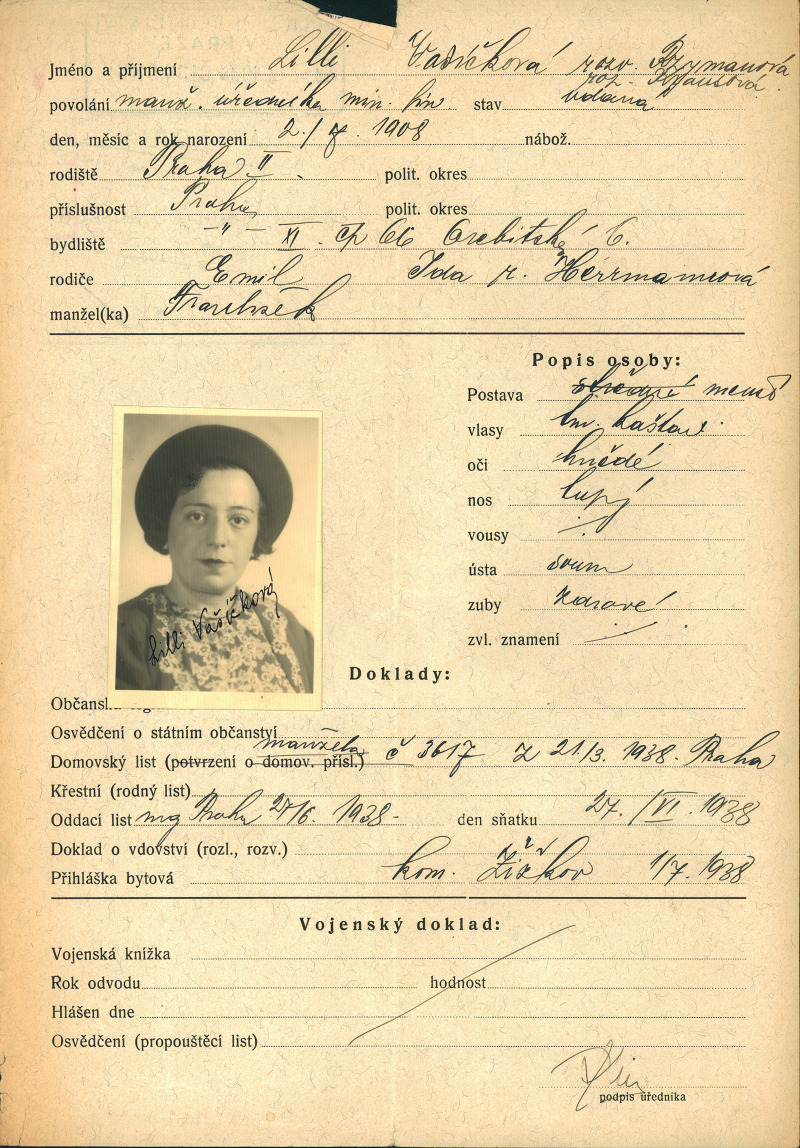 V PRAZE
Jméno a příjmení Lilli Vašíčková rozv.
povolání manž. úředníka min. fin. stav vdaná
den, měsíc a rok narození 2./7. 1908 nábož.
rodiště Praha II. polit. okres
příslušnost Praha polit. okres
bydliště -"- XI. čp
rodiče Emil Ida r. Herrmannová
manžel(ka) František
Popis osoby:
Postava střední menší
vlasy tm. kaštan.
oči hnědé
nos tupý
vousy
ústa soum
zuby zdravé
zvl. znamení
Lilli Vašíčková
Doklady:
Občansk
Osvědčení o státním občanství
manžela
Domovský list (potvrzení o domov. přísl.) č 3617 z 21/3. 1938. Praha
Křestní (rodný list)
Oddací list mg Praha 27/6. 1938 - den sňatku 27. /VI. 1938
Doklad o vdovství (rozl., rozv.)
Přihláška bytová kom. Žižkov 1/7. 1938
Vojenský doklad:
Vojenská knížka
Rok odvodu hodnost
Hlášen dne
Osvědčení (propouštěcí list)
podpis úředníka